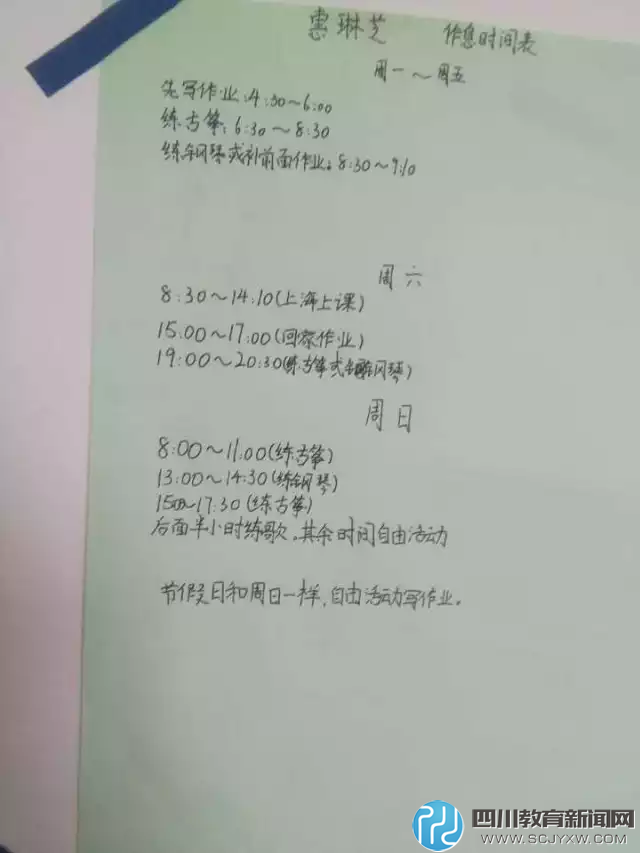 惠琳芝 作息时间表
周一～周五
先写作业:4:30～6:00
练古筝:6:30～8:30
练钢琴或补前面作业:8:30～9:10
周六
8:30～14:10(上海上课)
15:00～17:00(回家作业)
19:00～20:30(练古筝或钢琴)
周日
8:00～11:00(练古筝)
13:00～14:30(练钢琴)
15:00～17:30(练古筝)
后面半小时练歌，其余时间自由活动
节假日和周日一样，自由活动写作业。
四川教育新闻网
WWW.SCJYXW.COM